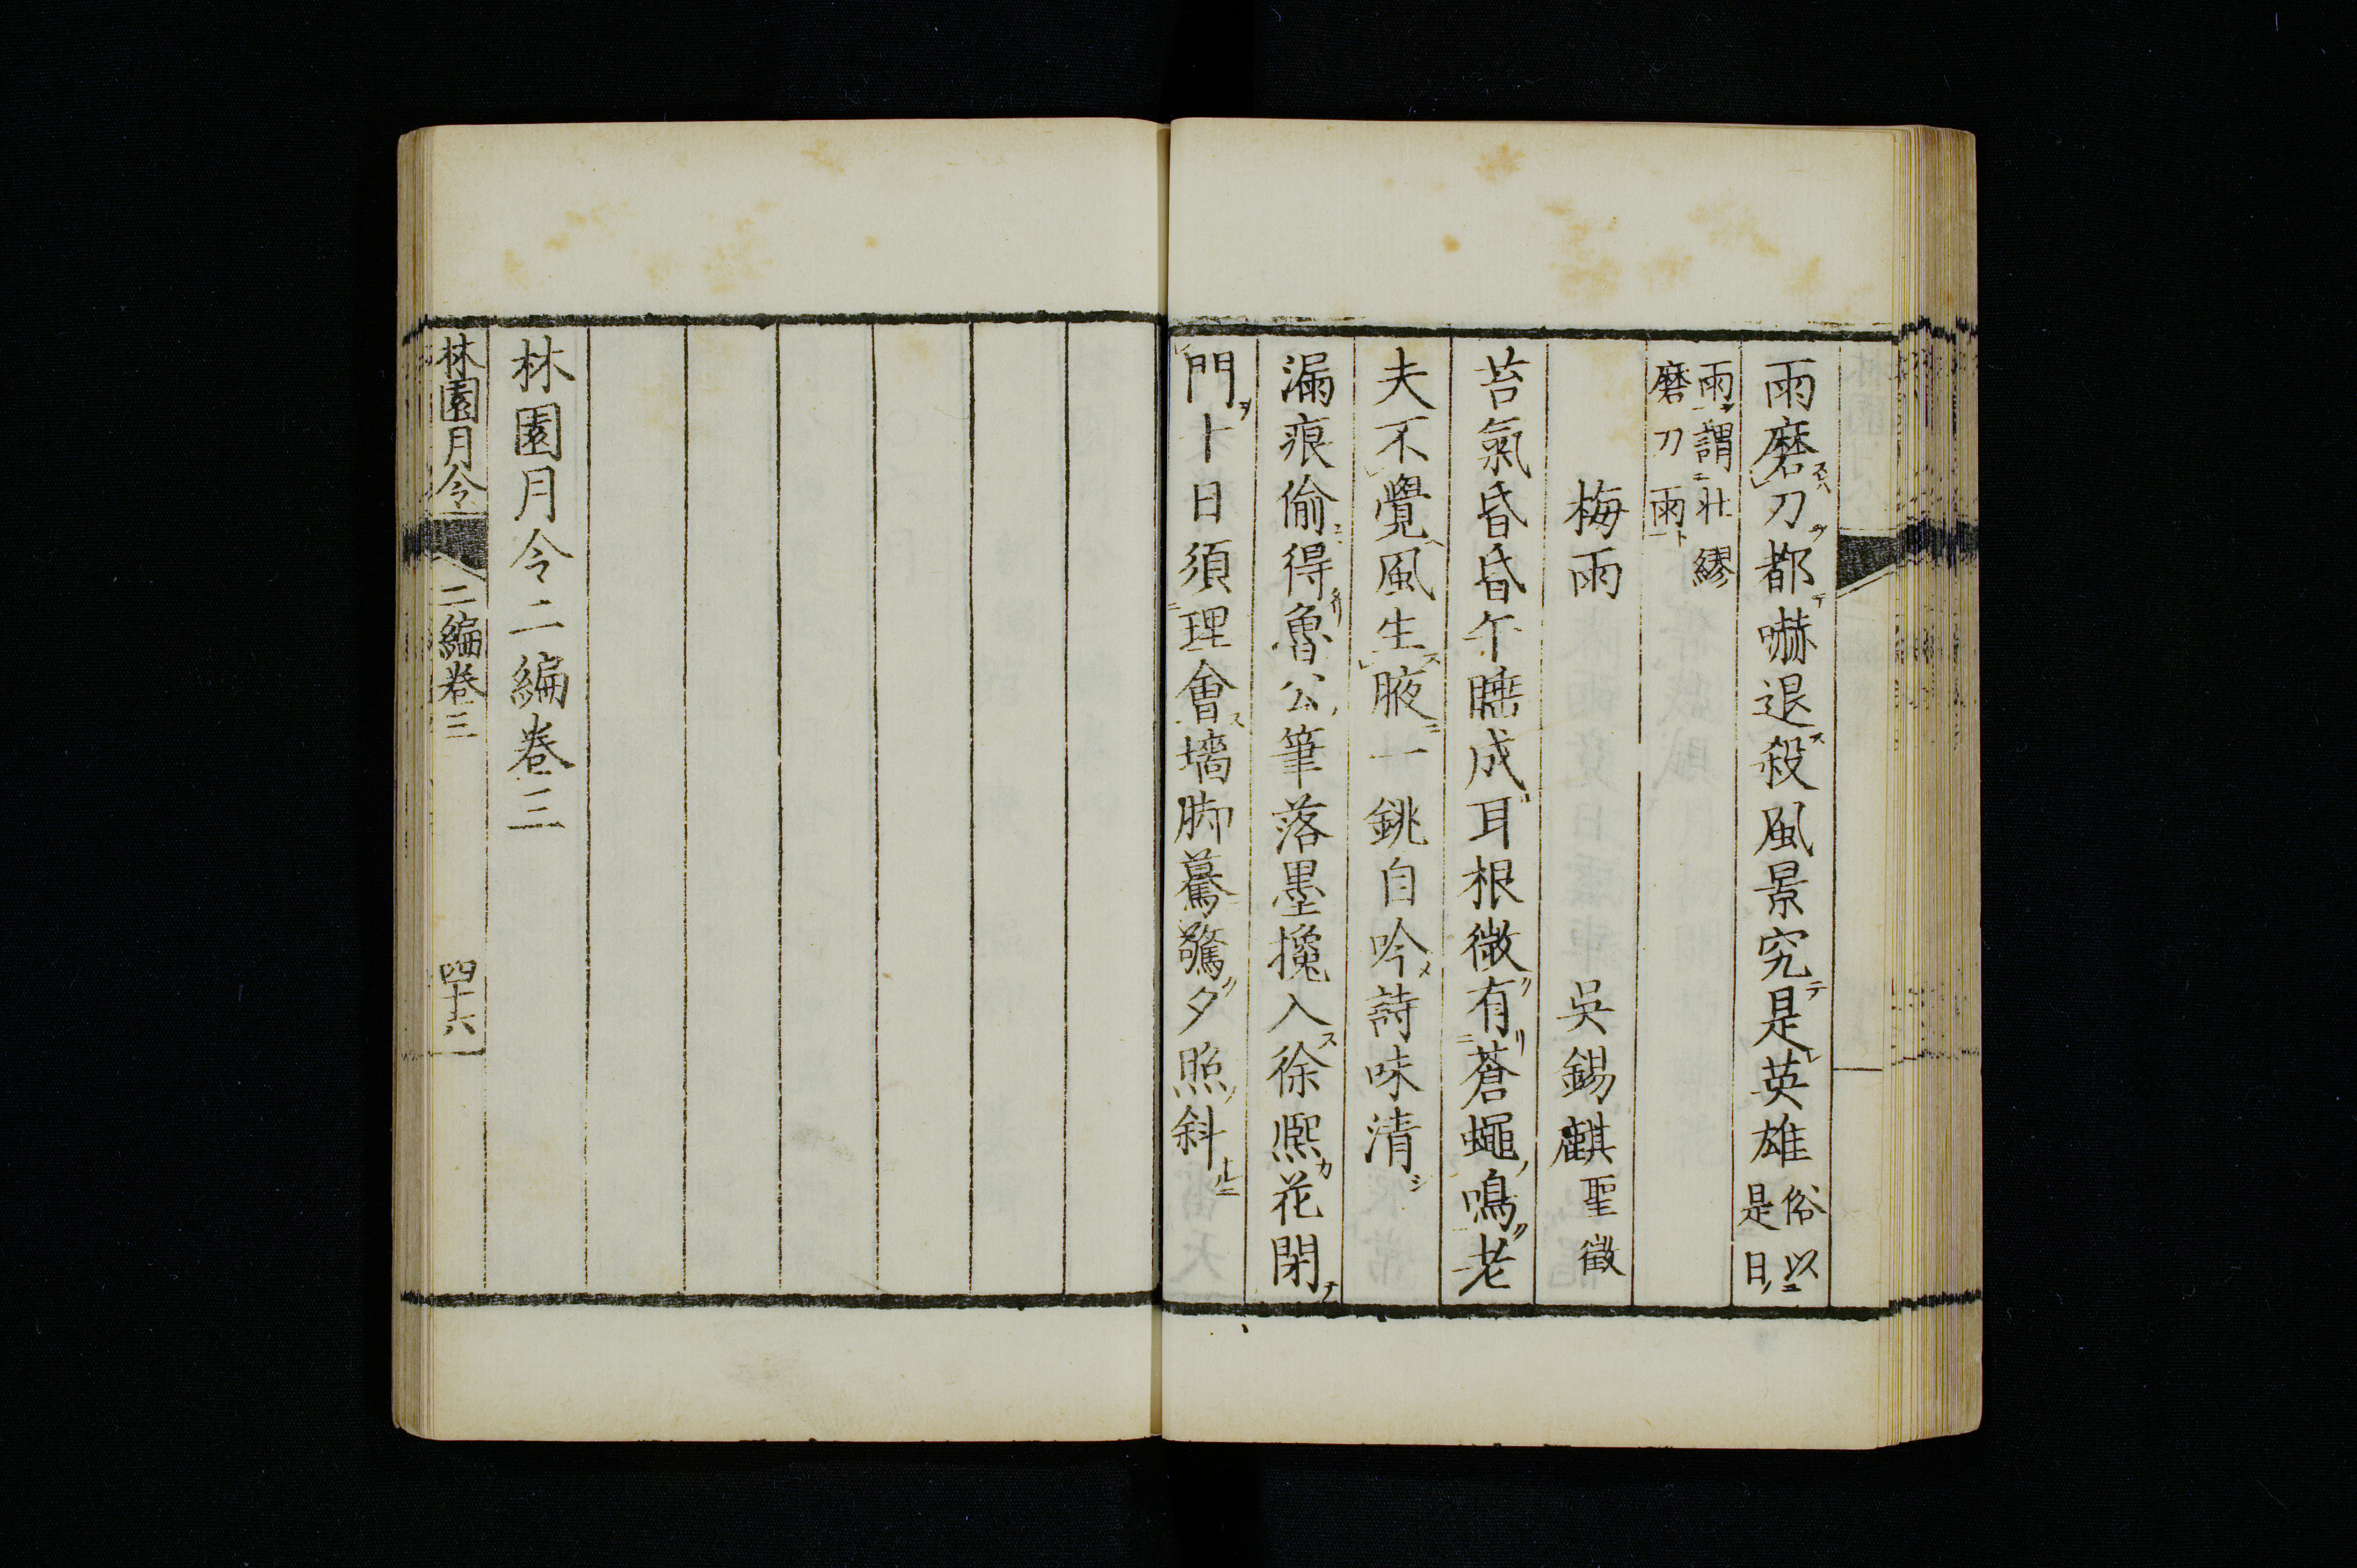 雨磨刀都嚇退殺風景究是英雄俗以是日
雨謂壮繆磨刀雨
梅雨 吳錫麒聖徵
苔氣昏昏午睡成耳根微有蒼蠅鳴老
夫不覺風生腋一銚自吟詩味清
漏痕偷得魯公筆落墨攙入徐熙花閉
門十日須理會墻脚驀驚夕照斜
林園月令二編卷三
林園月令 二編卷三 四十六